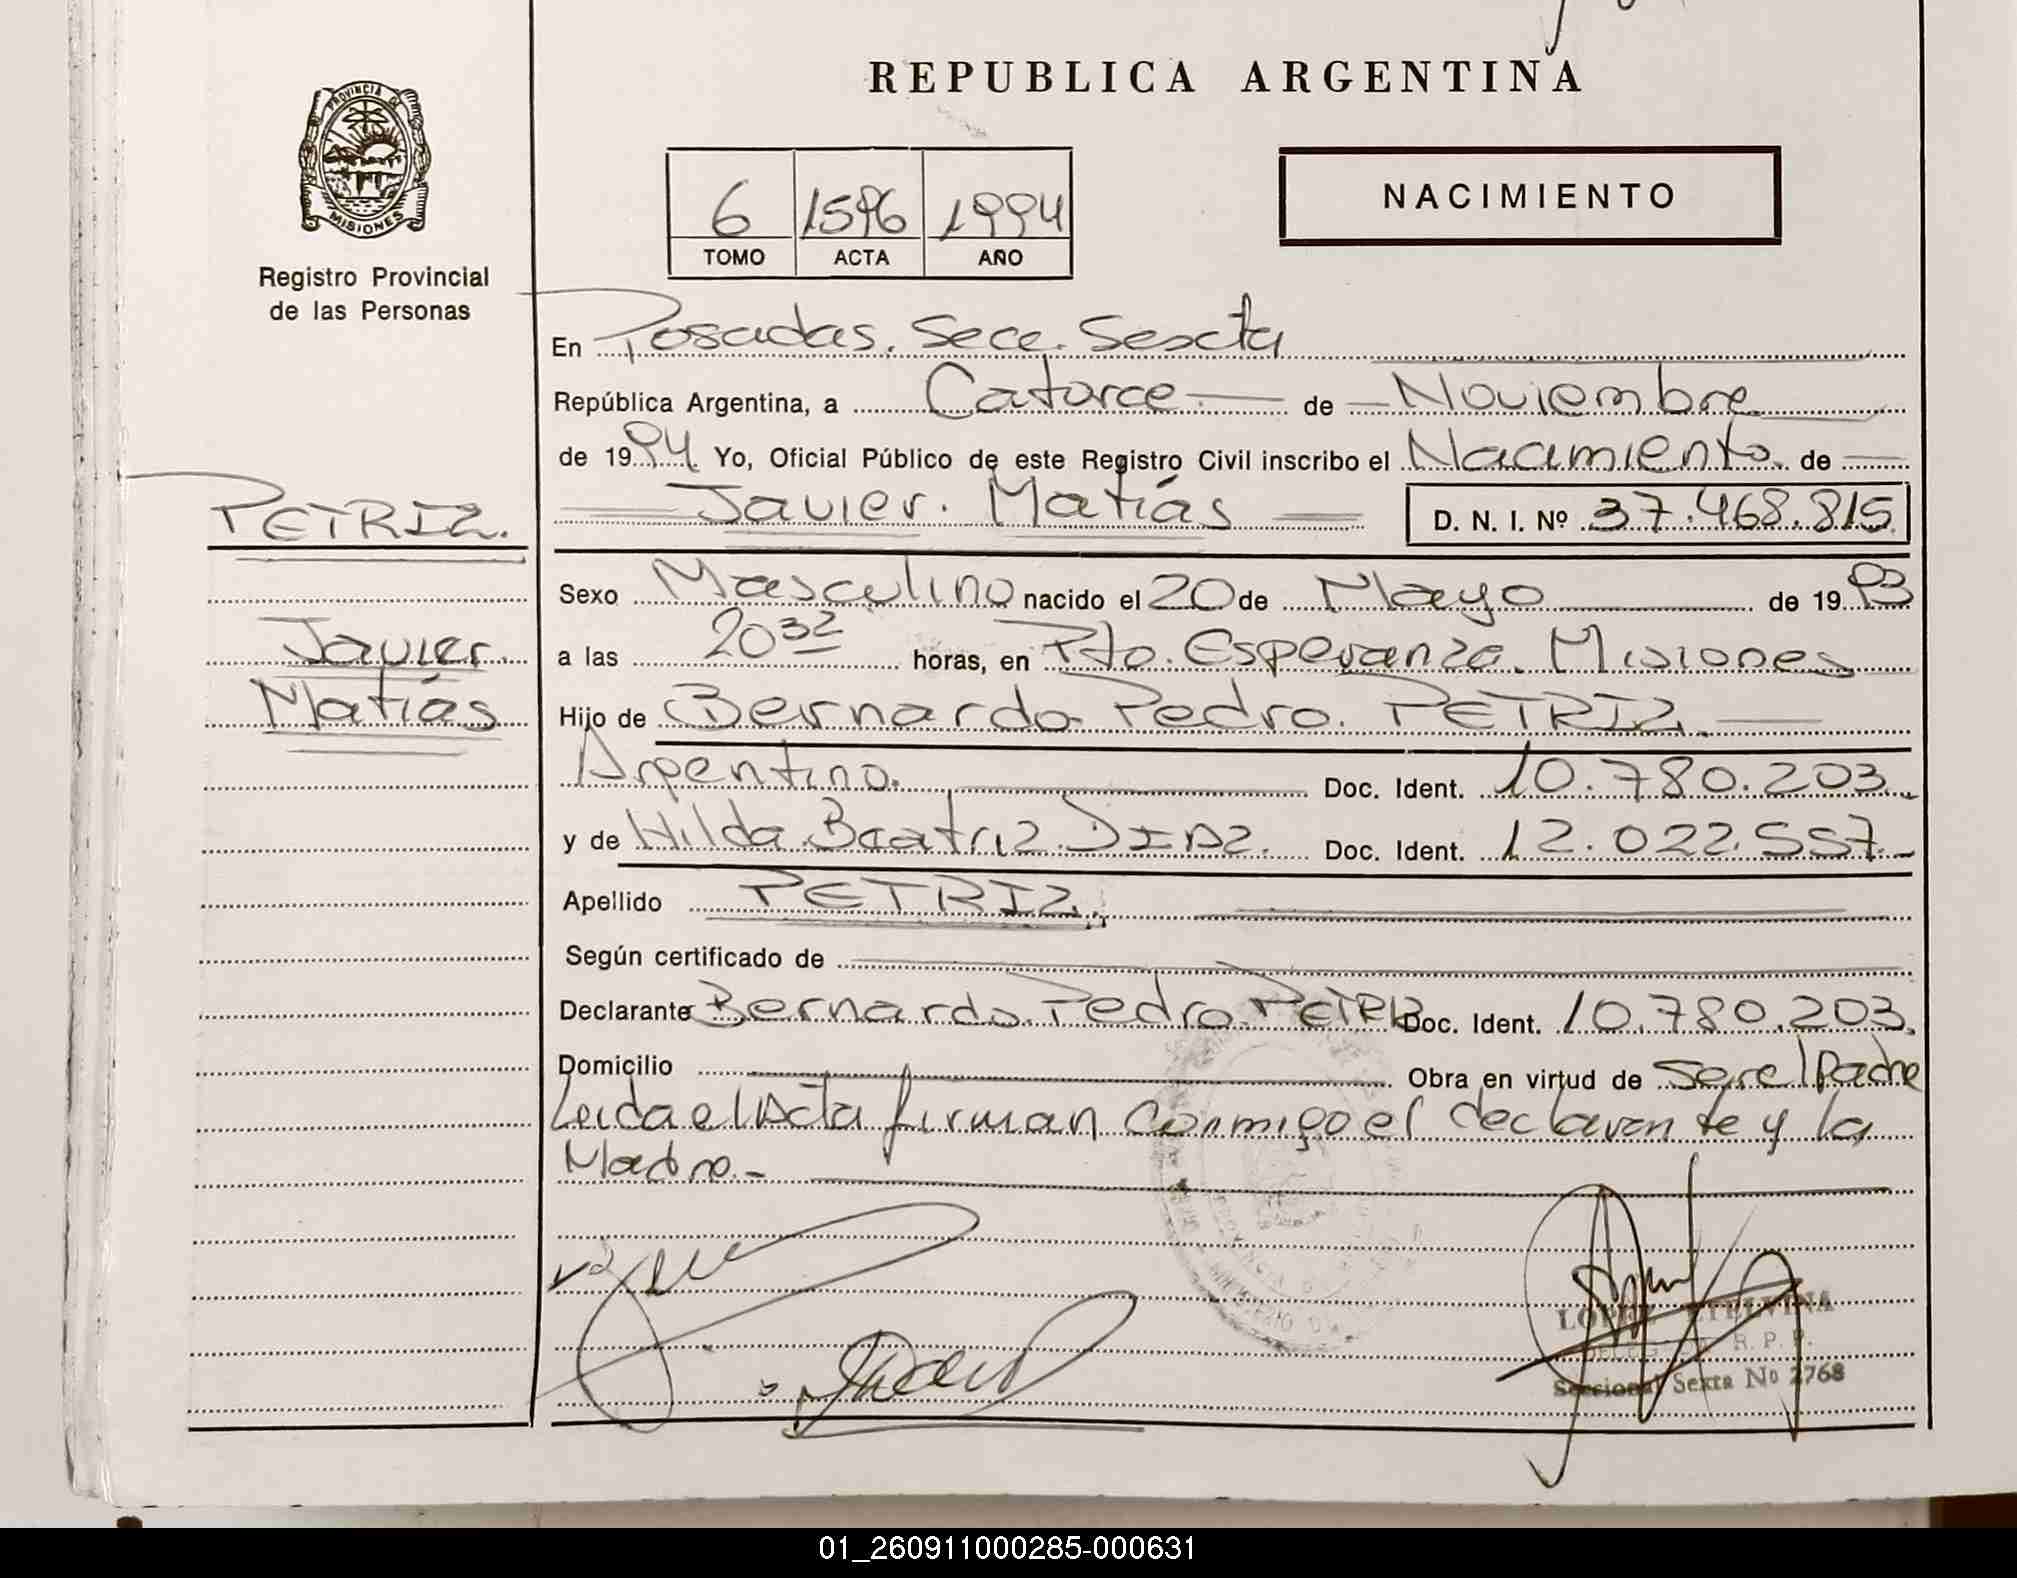 REPUBLICA ARGENTINA
PROVINCIA DE
MISIONES
Registro Provincial
de las Personas
NACIMIENTO
6 1596 1994
TOMO ACTA AÑO
En Posadas. Secc. Sexcta
República Argentina, a Catorce. de Noviembre
de 1994. Yo, Oficial Público de este Registro Civil inscribo el Nacimiento. de
Javier. Matías D. N. I. Nº 37.468.815
PETRIZ.
Javier.
Matías
Sexo Masculino nacido el 20 de Mayo de 1993
a las 20 32 horas, en Pto. Esperanza. Misiones
Hijo de Bernardo Pedro. PETRIZ.
Argentino. Doc. Ident. 10.780.203.
y de Hilda Beatriz DIAZ. Doc. Ident. 12.022.557.-
Apellido PETRIZ.
Según certificado de
Declarante Bernardo. Pedro. PETRIZ Doc. Ident. 10.780.203.
Domicilio Obra en virtud de ser el Padre
Leida el Acta firman conmigo el declarante y la
Madre.-
LOPEZ ETELVINA
R. P. P.
Seccional Sexta No 2768
01_260911000285-000631